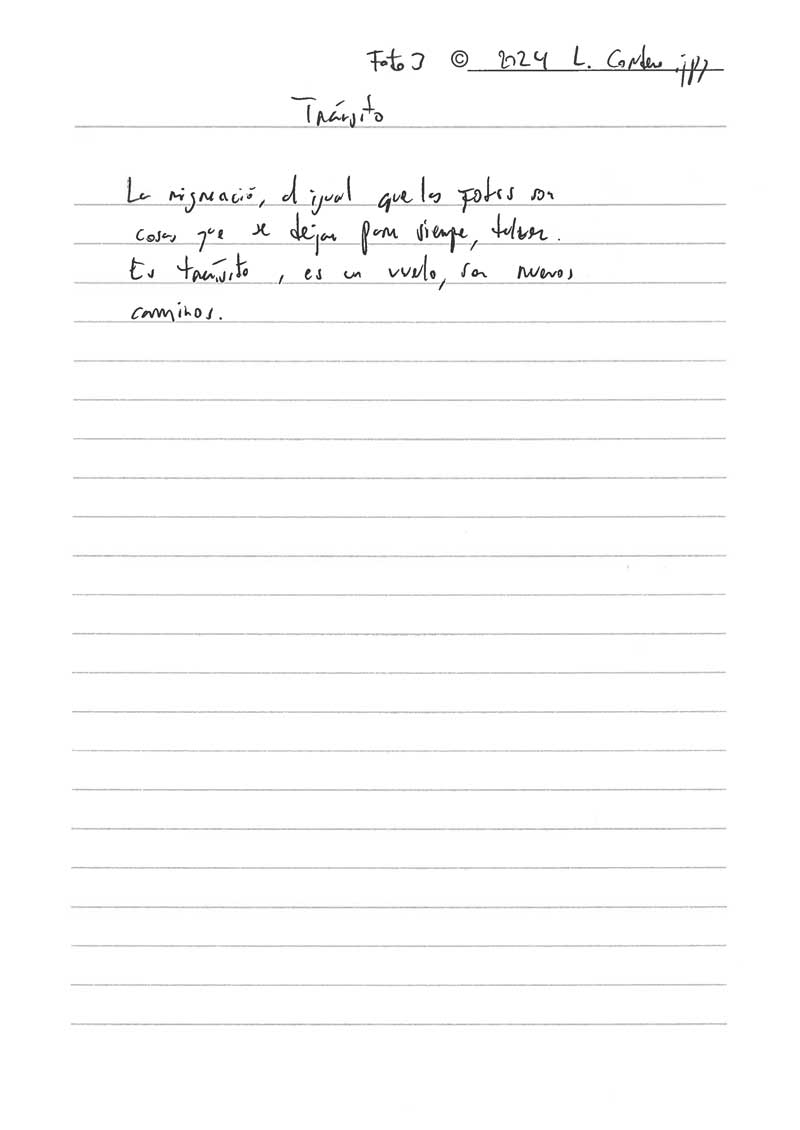 Foto 3 © 2024 L. Cordero.jpg
Tránsito
La migración, al igual que las fotos son
cosas que se dejan para siempre,
Es tránsito, es un vuelo, son nuevos
caminos.